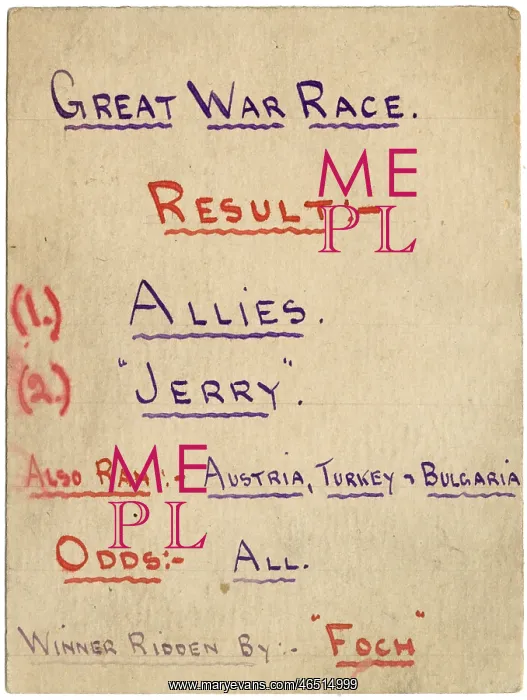 GREAT WAR RACE.
RESULT:-
ME
PL
(1.) ALLIES.
(2.) "JERRY".
ALSO RAN:- AUSTRIA, TURKEY & BULGARIA
ME
PL
ODDS:- ALL.
WINNER RIDDEN BY:- "FOCH"
www.maryevans.com/46514999